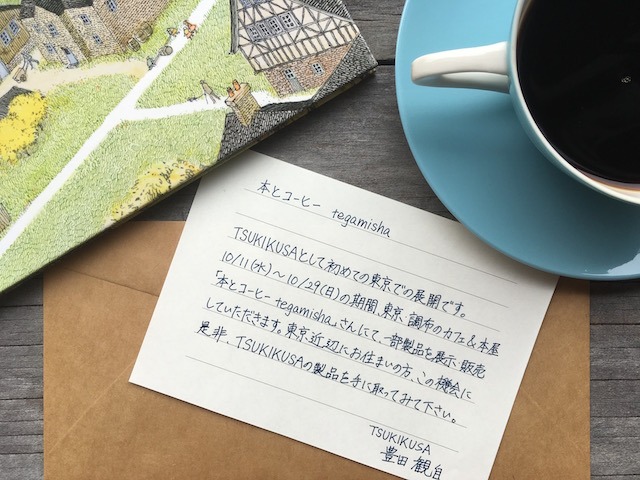 本とコーヒー tegamisha
TSUKIKUSAとして初めての東京での展開です。
10/11(水)〜10/29(日)の期間、東京・調布のカフェ&本屋
「本とコーヒー tegamisha」さんにて、一部製品を展示・販売
していただきます。東京近辺にお住まいの方、この機会に
是非、TSUKIKUSAの製品を手に取ってみて下さい。
TSUKIKUSA
豊田 観自